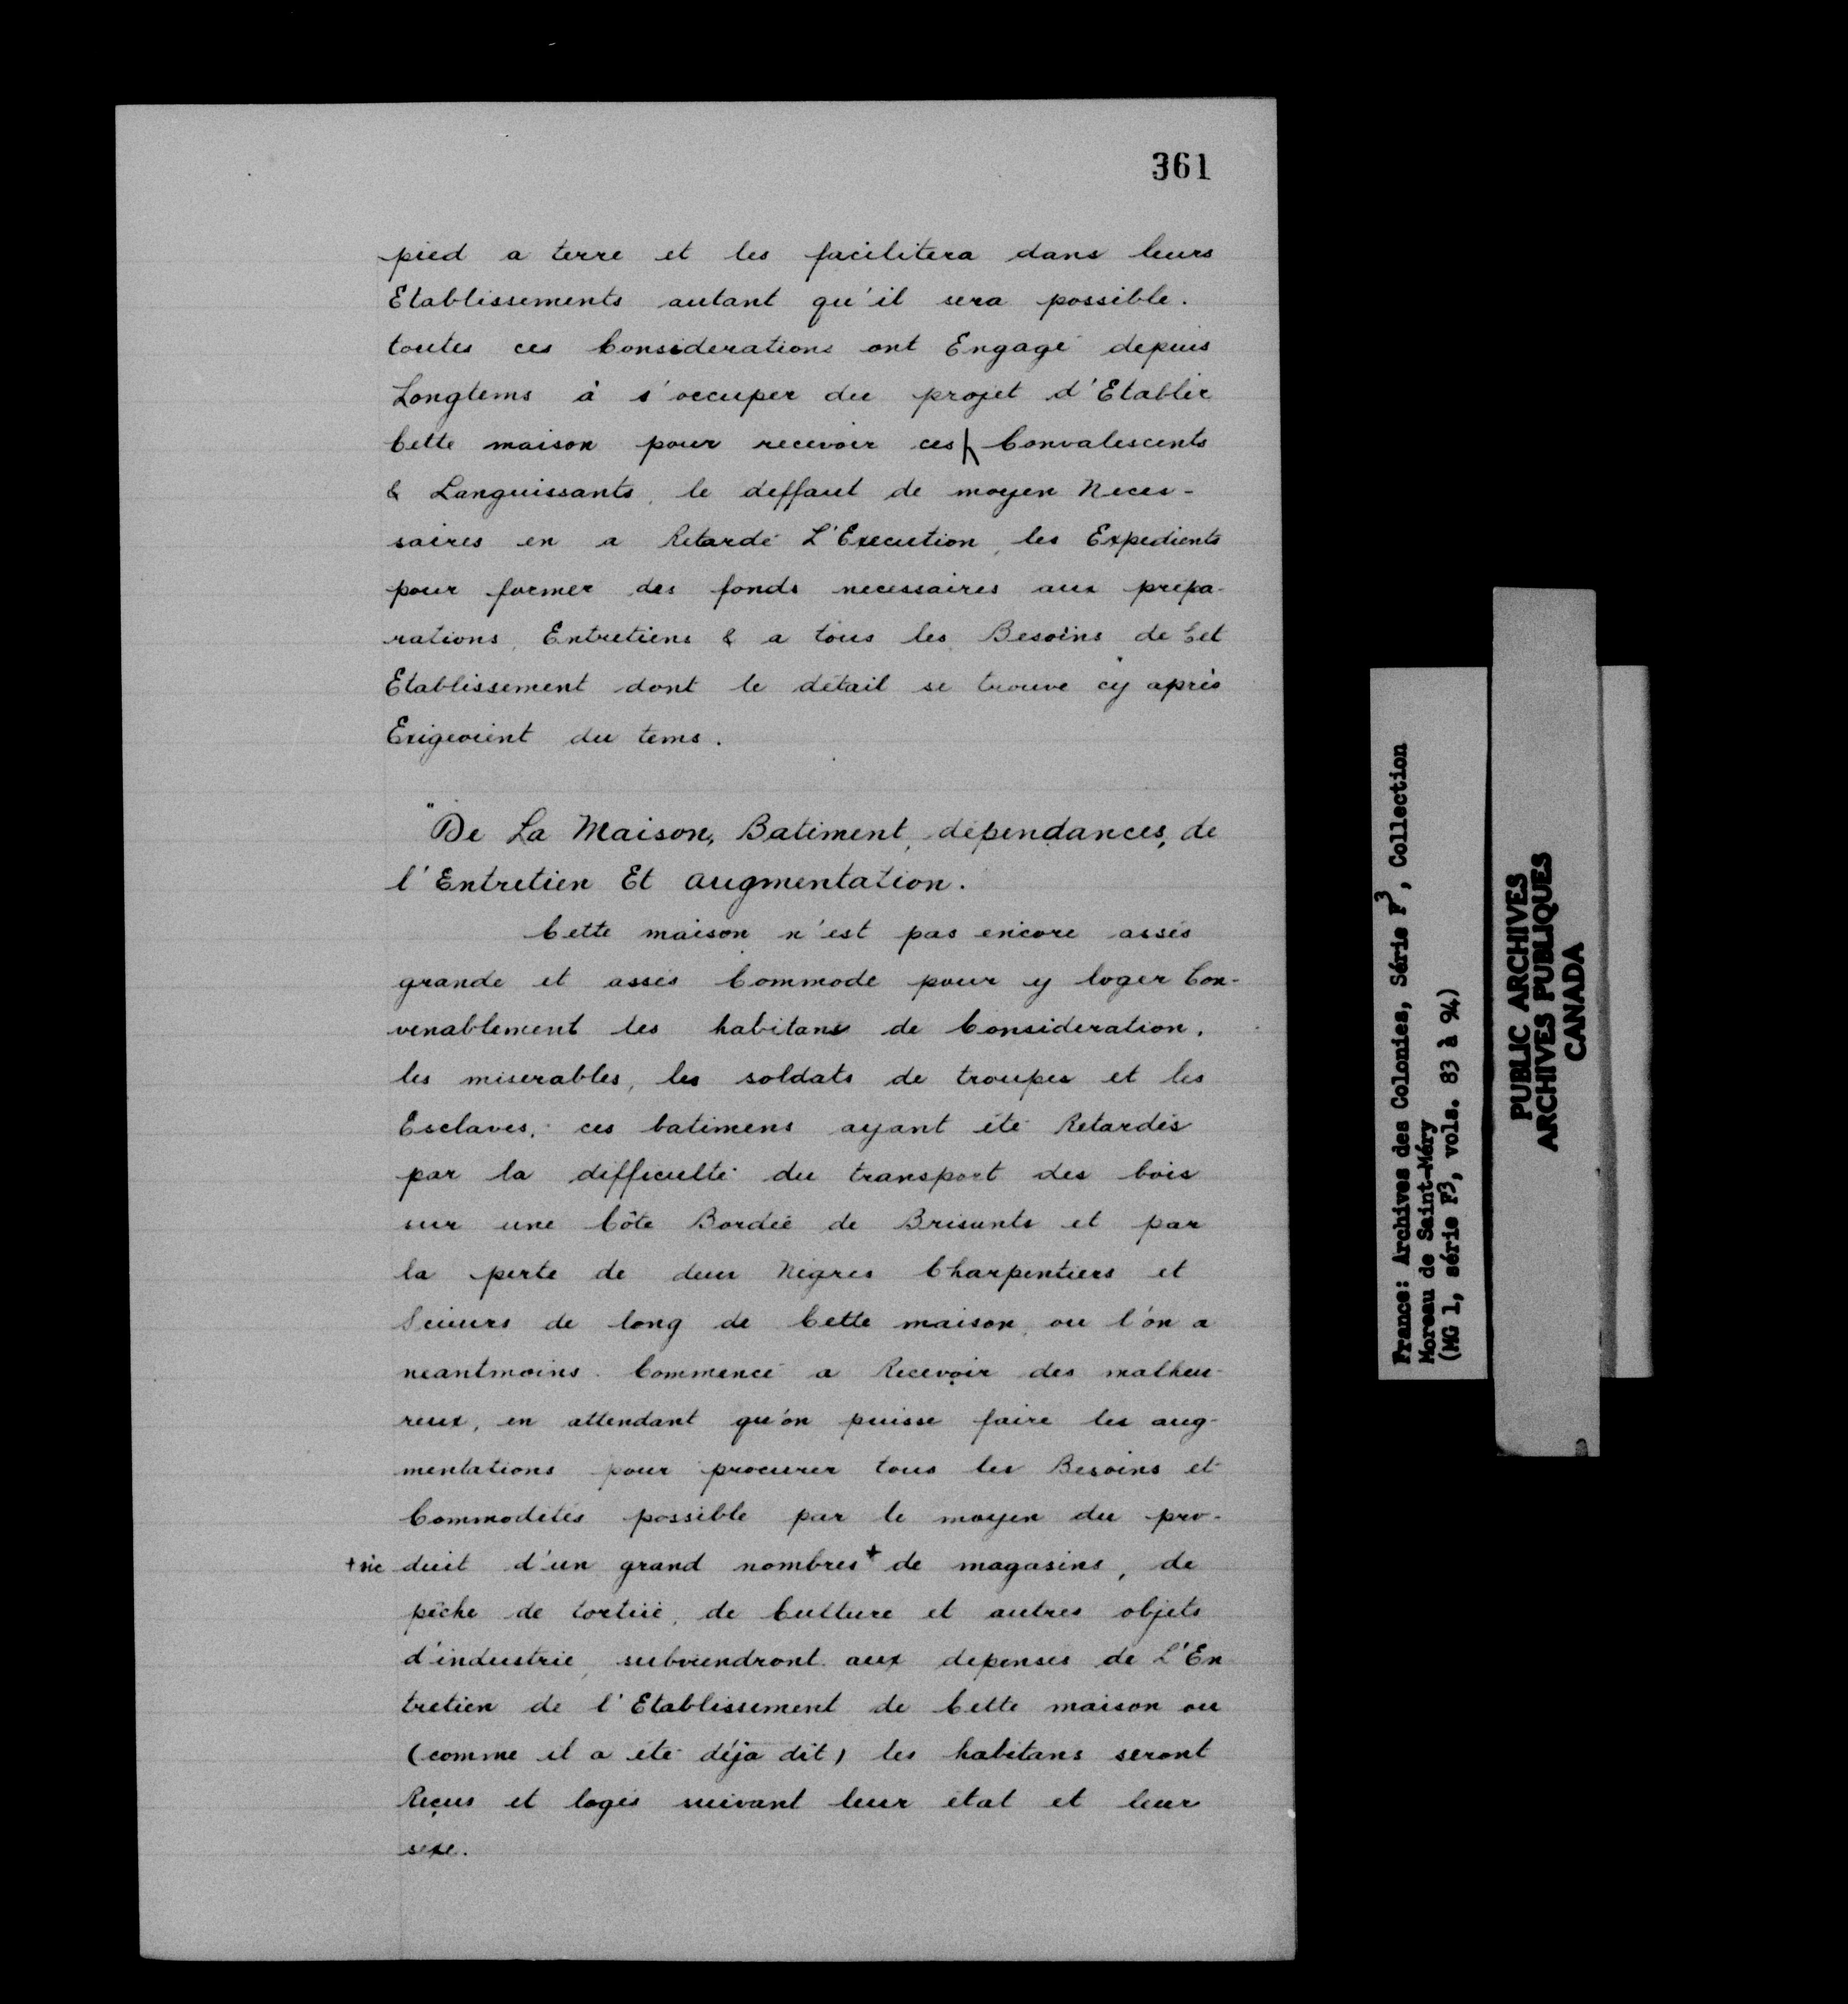 361
pied a terre et les facilitera dans leurs
Etablissements autant qu'il sera possible.
toutes ces Considerations ont Engagé depuis
Longtems à s'occuper du projet d'Etablir
Cette maison pour recevoir ces Convalescents
& Languissants, le deffaut de moyen Neces-
saires en a Retardé L'Execution, les Expedients
pour former des fonds necessaires aux prépa-
rations, Entretiens & a tous les Besoins de Cet
Etablissement dont le détail se trouve cy après
Exigeoient du tems.
"De La Maison, Batiment, dépendances, de
l'Entretien Et augmentation.
Cette maison n'est pas encore assés
grande et assés Commode pour y loger Con-
venablement les habitans de Consideration,
les miserables, les soldats de troupes et les
Esclaves, ces batimens ayant été Retardés
par la difficulté du transport des bois
sur une Côte Bordée de Brisants et par
la perte de deux Nègres Charpentiers et
Scieurs de long de Cette maison, ou l'on a
neantmoins Commencé a Recevoir des malheu-
reux, en attendant qu'on puisse faire les aug-
mentations pour procurer tous les Besoins et
Commodités possible par le moyen du pro-
+ sic duit d'un grand nombres + de magasins, de
pêche de tortüe, de Culture et autres objets
d'industrie, subviendront aux dépenses de L'En
tretien de l'Etablissement de Cette maison ou
(comme il a été déja dit) les habitans seront
Reçus et logés suivant leur état et leur
sexe.
France: Archives des Colonies, Série F3, Collection
Moreau de Saint-Méry
(MG 1, série F3, vols. 83 à 94)
PUBLIC ARCHIVES
ARCHIVES PUBLIQUES
CANADA